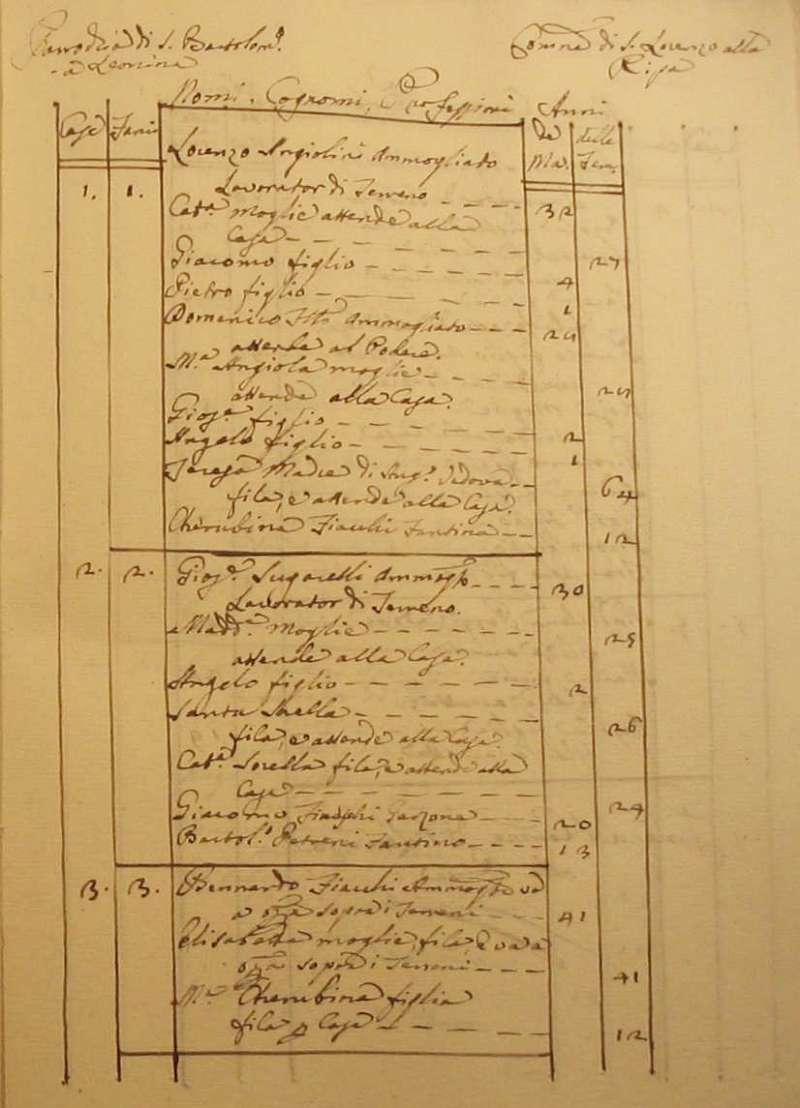 Parrochia di S. Bartolom.º
a Leonina
Comune di S. Lorenzo alla
Ripa
Nomi, Cognomi, Professioni Anni
Case Fami
de Ma. delle Fem.
Lorenzo Angiolini Ammogliato
1. 1. Lavorator di Terreno 32
Cat.ª Moglie attende alla
Casa 27
Giacomo figlio 4
Pietro figlio 1
Domenico Ammogliato 24
attende al Podere.
M.ª Angiola moglie
attende alla Casa. 24
Gios.ª figlio 2
Angelo figlio 1
Teresa Madre di Ang.º Vedova
fila, e attende alla Casa. 64
Cherubina Fiacchi Fantina 12
2. 2. Gios.ª Lugarelli Ammog.to 30
Lavorator di Terreno.
Madd.ª Moglie 25
attende alla Casa.
Angelo figlio 2
Santa Srella
fila, e attende alla Casa 26
Cat.ª Sorella fila, e attende alla
Casa 24
Giacomo Garzone 20
Bartol.º Petreni Fantino 13
3. 3. Bernardo Fiacchi Ammog.to va
a op.ra sopra i Terreni 41
Elisabetta moglie, fila, e va a
op.ra sopra i Terreni 41
M.ª Cherubina figlia
fila p Casa 12